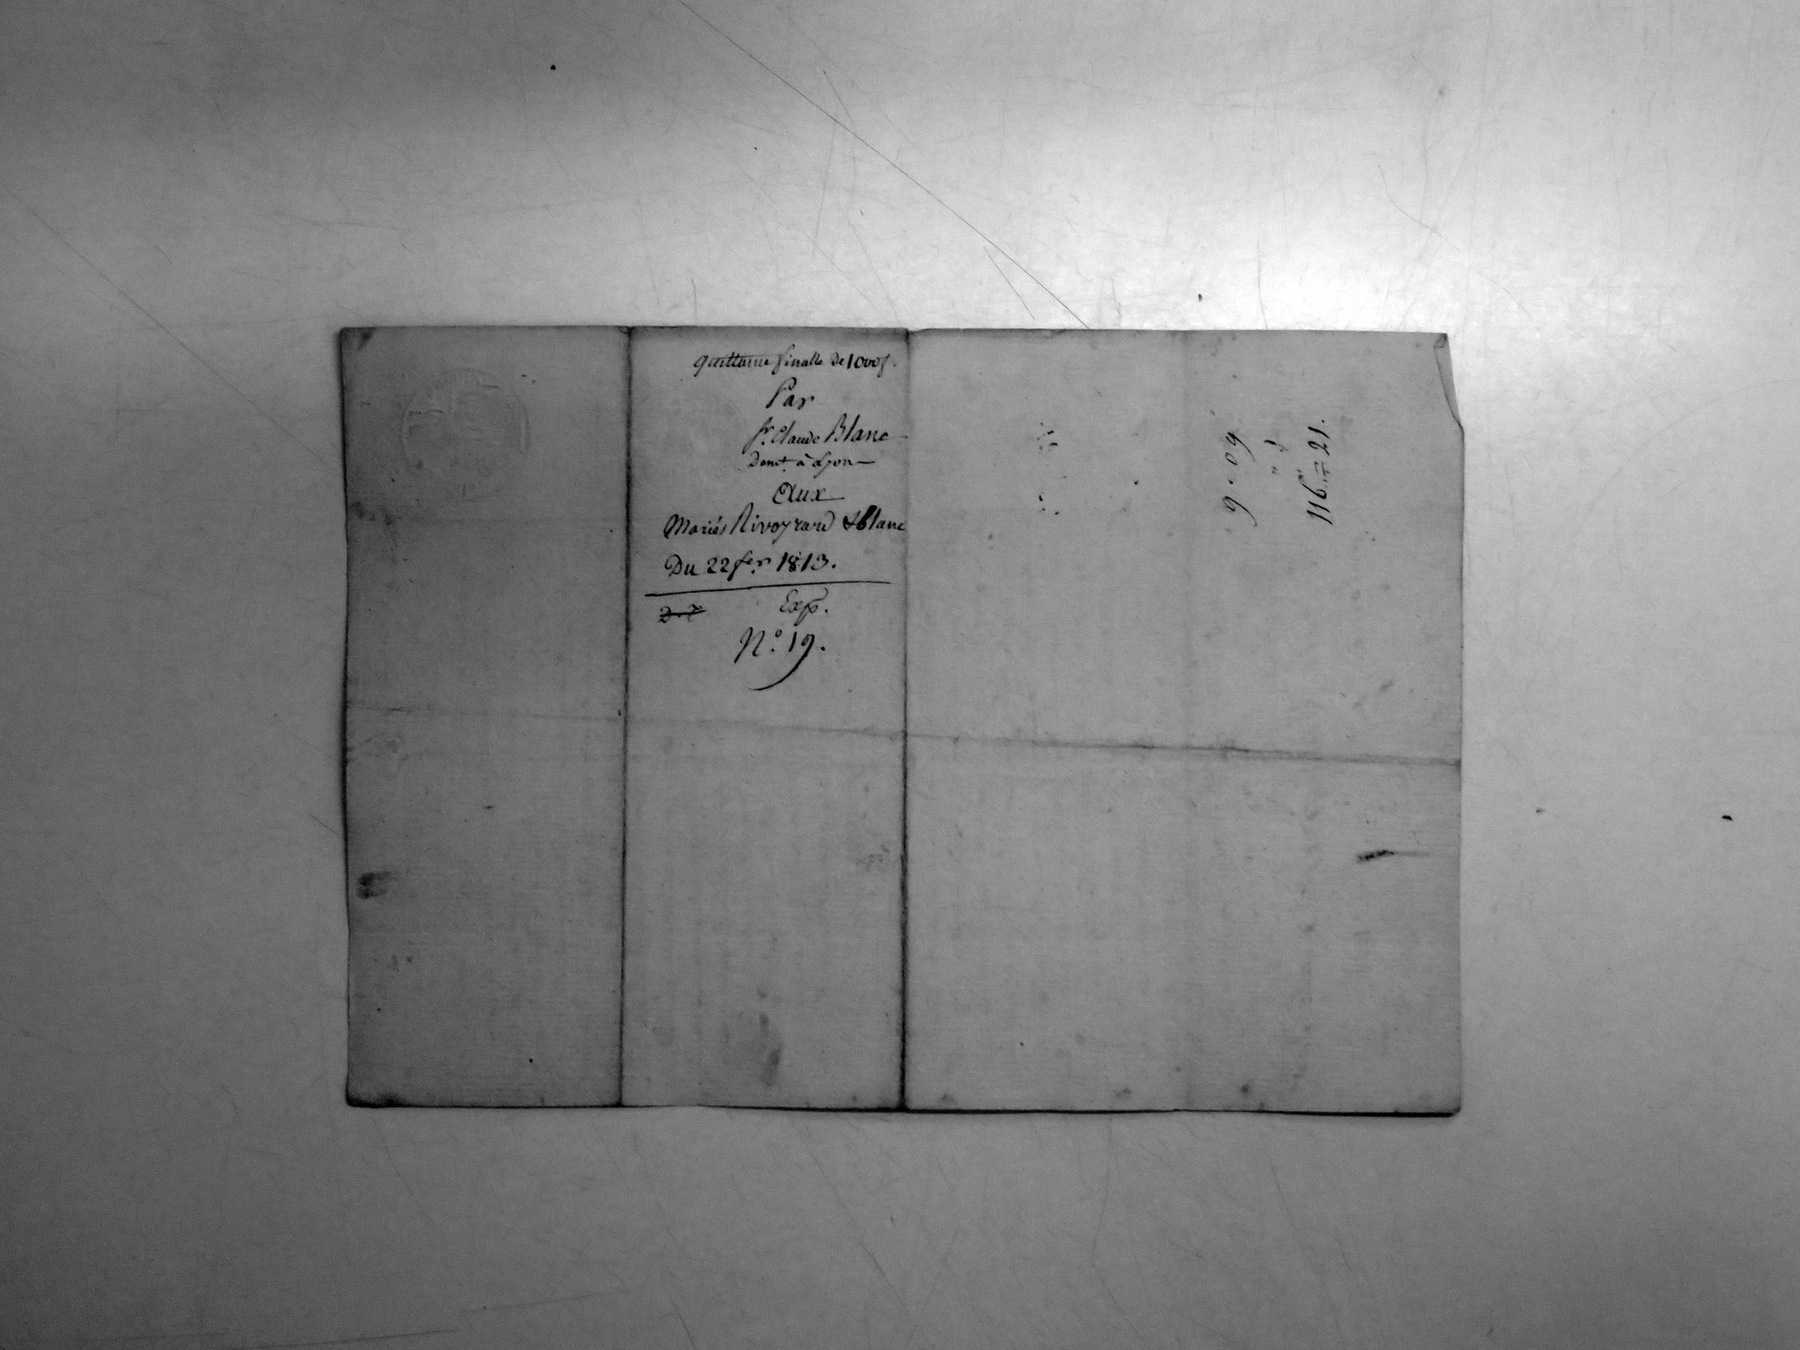 quittance finalle de 1000f.
Par
Sr. Claude Blanc
Demt. à Lyon
Aux
Mariés Rivoyrard & blanc
Du 22 fer. 1813.
Exp.
N°. 19.
9 . 09
116 = 21.